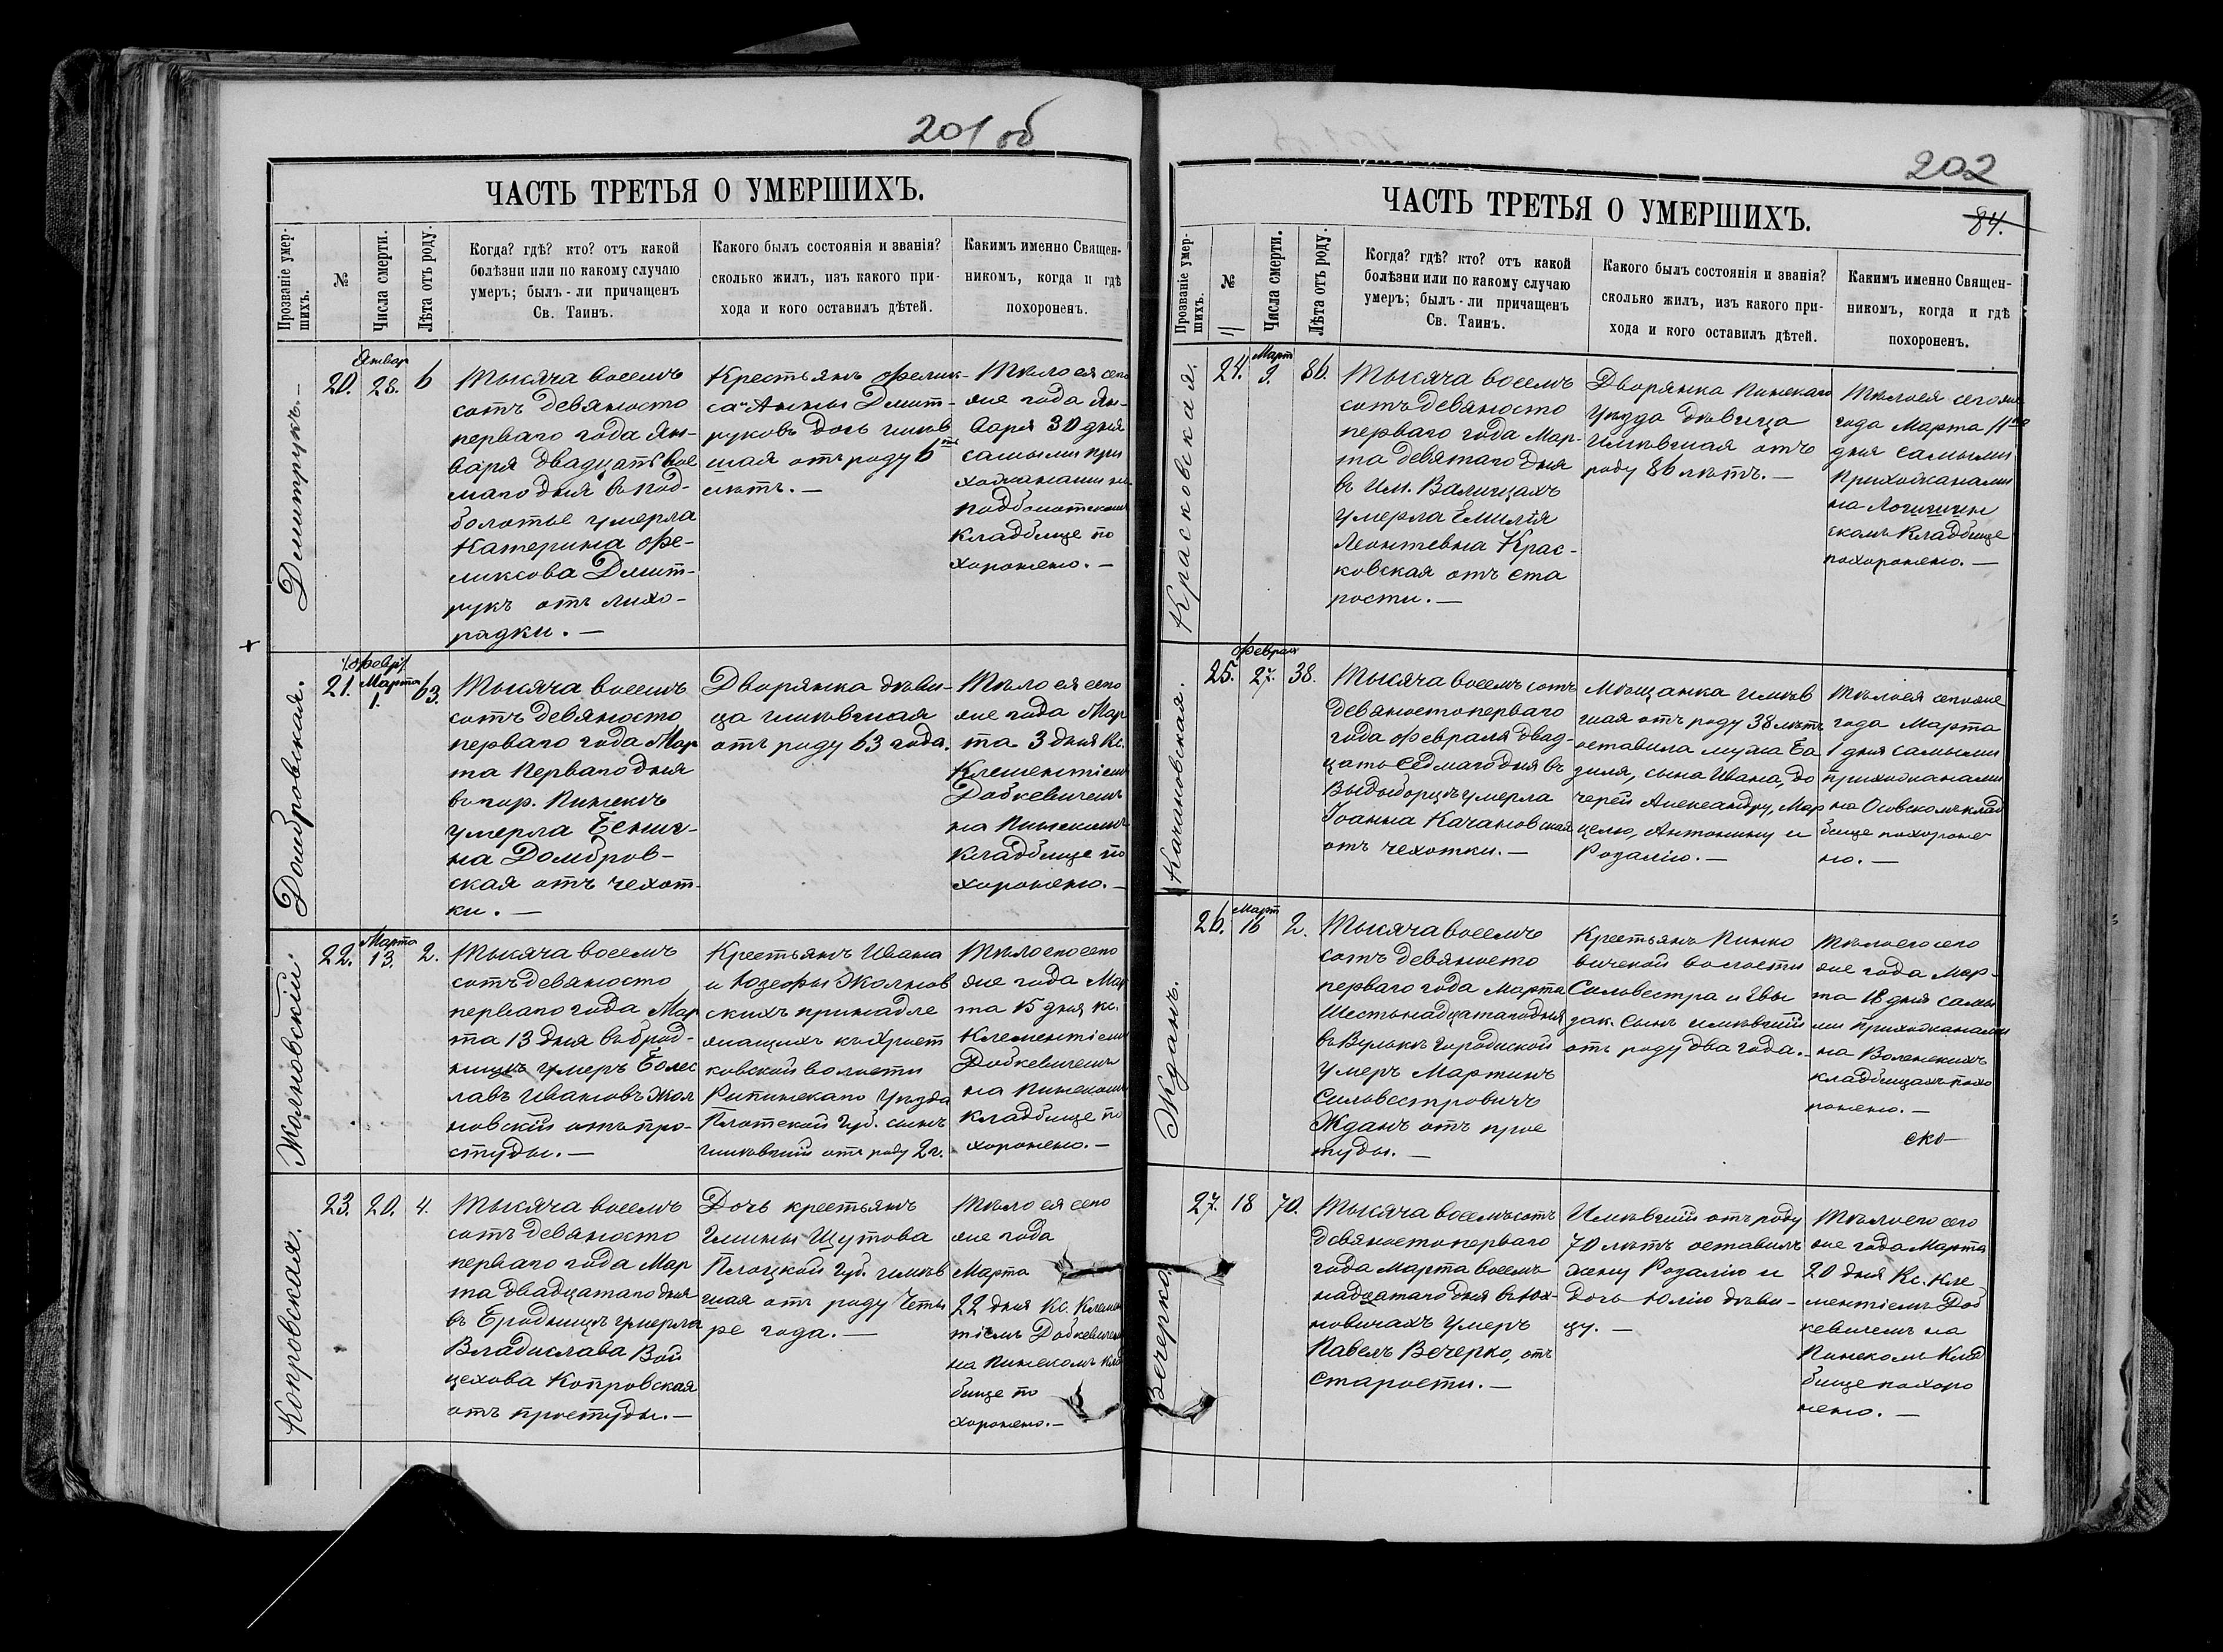 201 об
ЧАСТЬ ТРЕТЬЯ О УМЕРШИХЪ.
Прозваніе умер-
шихъ.
№
Числа смерти.
Лѣта отъ роду.
Когда? гдѣ? кто? отъ какой
болѣзни или по какому случаю
умеръ; былъ-ли причащенъ
Св. Таинъ.
Какого былъ состоянія и званія?
сколько жилъ, изъ какого при-
хода и кого оставилъ дѣтей.
Какимъ именно Священ-
никомъ, когда и гдѣ
похороненъ.
Дмитрукъ.—
20.
Январ
28.
6
Тысяча восемь
сотъ девяносто
перваго года Ян-
варя двадцать вос
маго дня въ Под-
болотье умерла
Катерина Фе-
ликсова Дмит-
рукъ отъ лихо-
радки. —
Крестьянъ Фелик-
са и Анны Дмит-
руковъ дочь имѣв
шая отъ роду 6
лѣтъ. —
Тѣло ея сего
же года Ян-
варя 30 дня
самыми при
хожанами на
Подболотскомъ
кладбище по
хоронено. —
Домбровская.
21.
Марта
1.
63.
Тысяча восемь
сотъ девяносто
перваго года Мар
та перваго дня
въ гор. Пинскѣ
умерла Бениг-
на Домбров-
ская отъ чехот-
ки. —
Дворянка дѣви-
ца имѣвшая
отъ роду 63 года.
Тѣло ея сего
же года Мар
та 3 дня Кс.
Клементіемъ
Добкевичемъ
на Пинскомъ
кладбище по
хоронено. —
Жолновскій.
22.
Марта
13.
2.
Тысяча восемь
сотъ девяносто
перваго года Мар
та 13 дня въ Брод-
ницѣ умеръ Болес
лавъ Ивановъ Жол
новскій отъ про-
студы. —
Крестьянъ Ивана
и Юзефы Жолнов
скихъ принадле
жащихъ къ Хрост
ковской волости
Рипинскаго уѣзда
Плотской Губ. сынъ
имѣвшій отъ роду 2 г.
Тѣло его сего
же года Мар
та 15 дня Кс.
Клементіемъ
Добкевичемъ
на Пинскомъ
кладбище по
хоронено. —
Копровская.
23.
20.
4.
Тысяча восемь
сотъ девяносто
перваго года Мар
та двадцатаго дня
въ Бродницѣ умерла
Владислава Вой
цехова Копровская
отъ простуды. —
Дочь крестьянъ
Гмины Щутова
Плоцкой Губ. имѣв
шая отъ роду четы
ре года. —
Тѣло ея сего
же года
Марта
22 дня Кс. Клемен
тіемъ Добкевичемъ
на Пинскомъ клад
бище по
хоронено. —
202
84.
ЧАСТЬ ТРЕТЬЯ О УМЕРШИХЪ.
Прозваніе умер-
шихъ.
№
Числа смерти.
Лѣта отъ роду.
Когда? гдѣ? кто? отъ какой
болѣзни или по какому случаю
умеръ; былъ-ли причащенъ
Св. Таинъ.
Какого былъ состоянія и званія?
сколько жилъ, изъ какого при-
хода и кого оставилъ дѣтей.
Какимъ именно Священ-
никомъ, когда и гдѣ
похороненъ.
Красковская.
24.
Март
9.
86.
Тысяча восемь
сотъ девяносто
перваго года Мар-
та девятаго дня
въ Им. Валищахъ
умерла Емилія
Леонтевна Крас-
ковская отъ ста
рости. —
Дворянка Пинскаго
уѣзда дѣвица
имѣвшая отъ
роду 86 лѣтъ. —
Тѣло ея сего же
года Марта 11 го
дня самыми
Прихожанами
на Логишин
скомъ кладбище
похоронено. —
Качановская.
25.
Февраля
27.
38.
Тысяча восемь сотъ
девяносто перваго
года Февраля двад-
цать седмаго дня въ
Выдыборцѣ умерла
Іоанна Качановская
отъ чехотки. —
Мѣщанка имѣв
шая отъ роду 38 лѣтъ
оставила мужа Ба
зиля, сына Ивана, до
черей Александру, Мар
целю, Антонину и
Розалію. —
Тѣло ея сего же
года Марта
1 дня самыми
прихожанами
на Осовскомъ клад
бище похороне
но. —
Жданъ.
26.
Март
16
2.
Тысяча восемь
сотъ девяносто
перваго года Марта
Шестьнадцатаго дня
въ Вулькѣ Городиской
умеръ Мартинъ
Сильвестровичъ
Жданъ отъ прос
туды. —
Крестьянъ Пинко
вичской волости
Сильвестра и Евы
зак. сынъ имѣвшій
отъ роду два года. —
Тѣло его сего
же года Мар-
та 18 дня самы
ми прихожанами
на Воленскихъ
кладбищахъ похо
ронено. —
ско—
Вечерко.
27.
18
70.
Тысяча восемьсотъ
девяносто перваго
года Марта восемь
надцатаго дня въ Юх-
новичахъ умеръ
Павелъ Вечерко, отъ
старости. —
Имѣвшій отъ роду
70 лѣтъ оставилъ
жену Розалію и
дочь Юлію дѣви-
цу. —
Тѣло его сего
же года Марта
20 дня Кс. Кле
ментіемъ Доб
кевичемъ на
Пинскомъ клад
бище похоро
нено. —